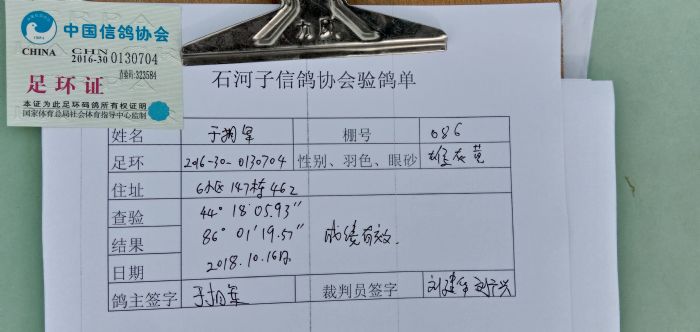 中国信鸽协会
CHINA CHN
2016-30 0130704
查询码:323584
足环证
本证为此足环码鸽所有权证明
国家体育总局社会体育指导中心监制
石河子信鸽协会验鸽单
姓名 于拥军 棚号 086
足环 2016-30-0130704 性别、羽色、眼砂 雄灰黄
住址 6小区147栋462
查验 44°18'05.93"
结果 86°01'19.57" 成绩有效.
日期 2018.10.16日
鸽主签字 于拥军 裁判员签字 刘建军 刘广兴